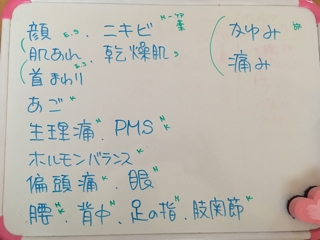 顔 E.S 、ニキビ N-ツア 薬
肌あれ 乾燥肌 S
首まわり E.S
あご N K
生理痛 K 、PMS N K
ホルモンバランス K
偏頭痛 K 、眼 N
腰 N K 、背中 N 、足の指 N 、肢関節 N K
かゆみ
痛み